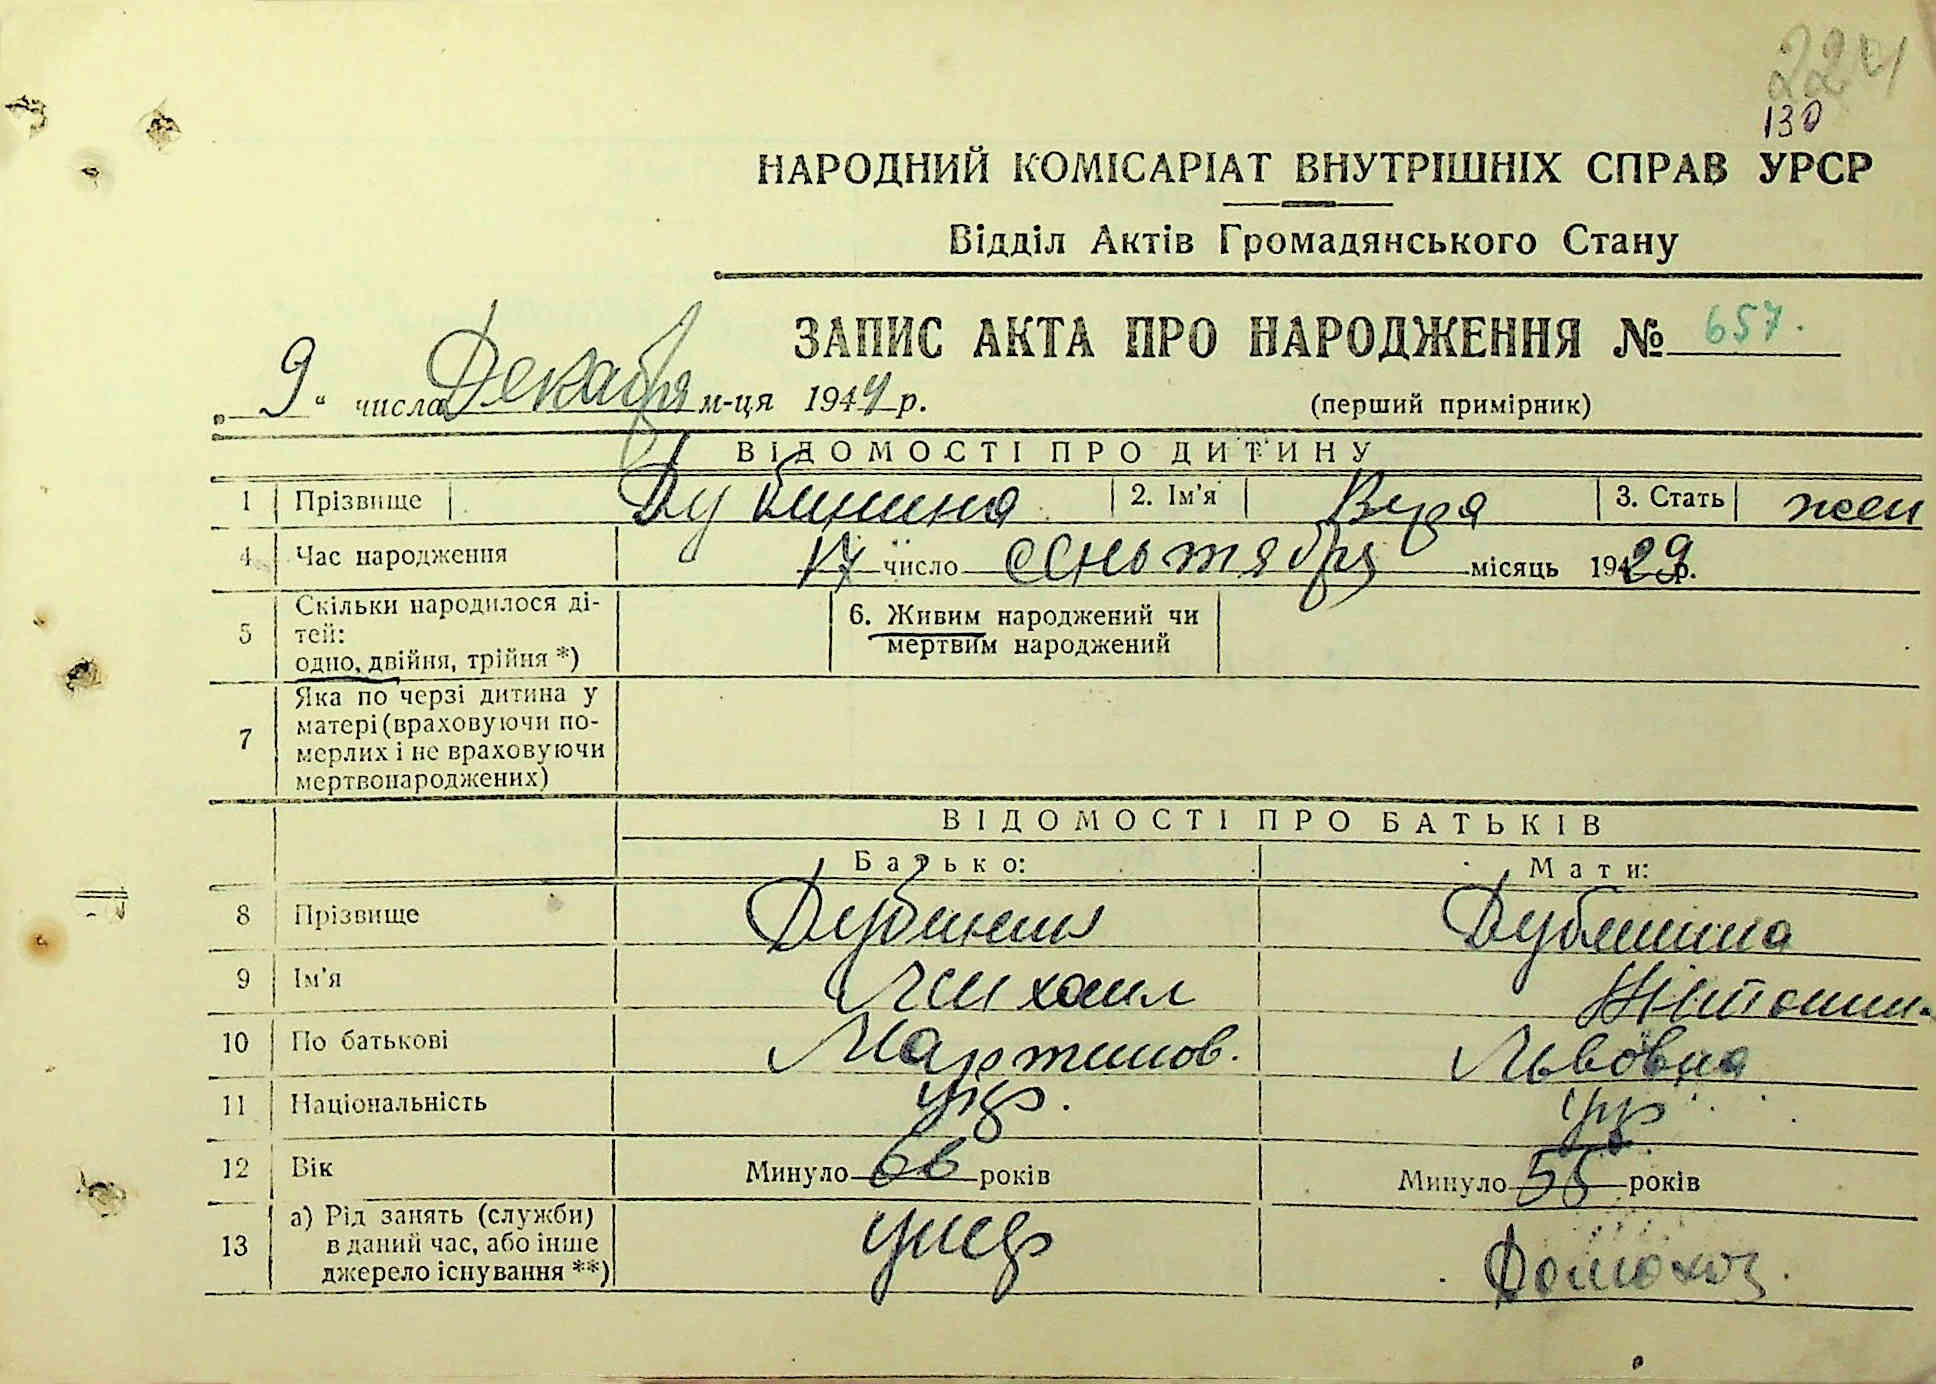 224
130
НАРОДНИЙ КОМІСАРІАТ ВНУТРІШНІХ СПРАВ УРСР
Відділ Актів Громадянського Стану
ЗАПИС АКТА ПРО НАРОДЖЕННЯ № 657.
„ 9 “ числа Декабря м-ця 1944 р. (перший примірник)
ВІДОМОСТІ ПРО ДИТИНУ
1 Прізвище Дубинина 2. Ім'я Вера 3. Стать жен
4 Час народження 17 число сентября місяць 1929 р.
5 Скільки народилося ді-
тей:
одно, двійня, трійня *)
6. Живим народжений чи
мертвим народжений
7 Яка по черзі дитина у
матері (враховуючи по-
мерлих і не враховуючи
мертвонароджених)
ВІДОМОСТІ ПРО БАТЬКІВ
Батько: Мати:
8 Прізвище Дубинин Дубинина
9 Ім'я Михаил
10 По батькові Мартинов. Львовна
11 Національність укр. укр
12 Вік Минуло 66 років Минуло 55 років
13 а) Рід занять (служби)
в даний час, або інше
джерело існування **)
умер Домохоз.